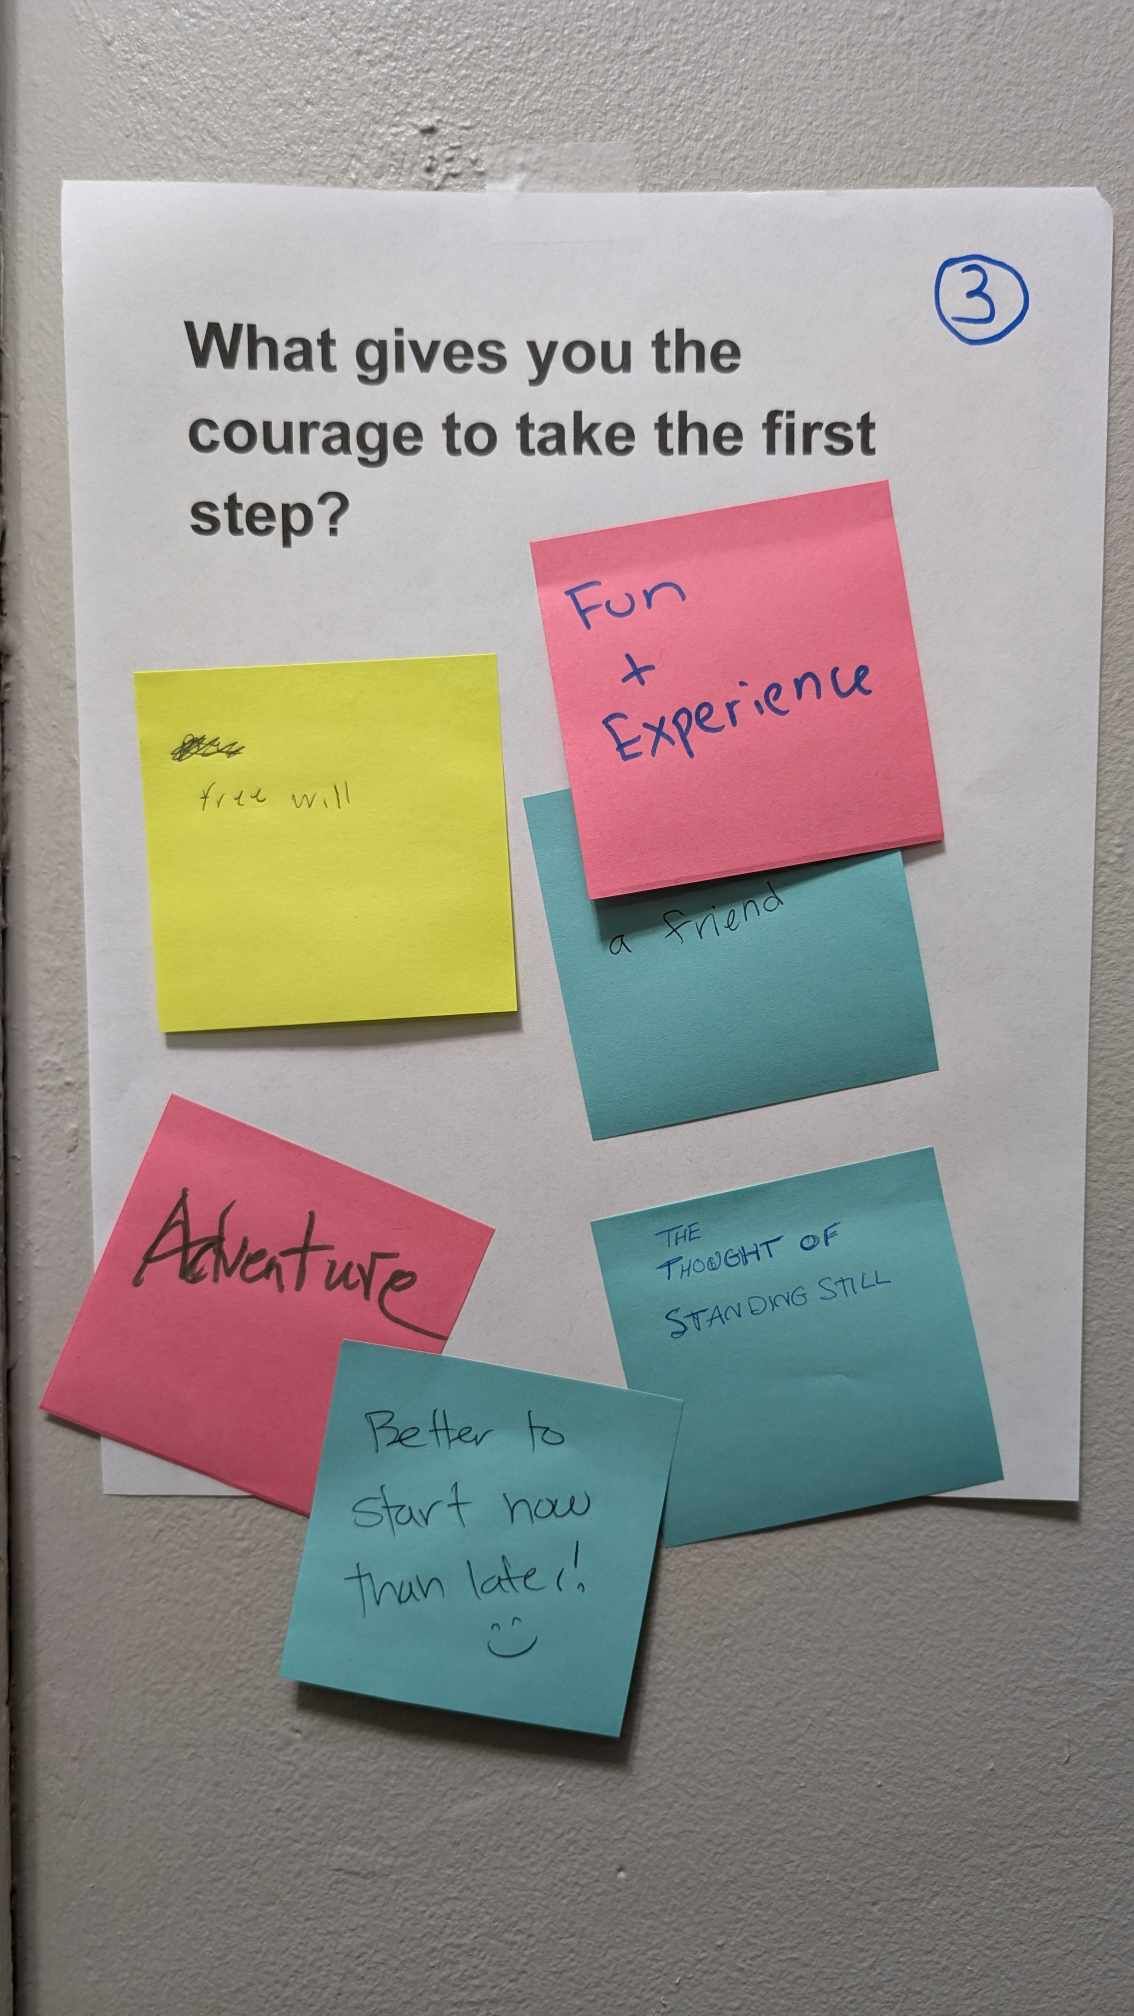 3
What gives you the
courage to take the first
step?
Fun
+
Experience
free will
a friend
Adventure
THE
THOUGHT OF
STANDING STILL
Better to
start now
than later!